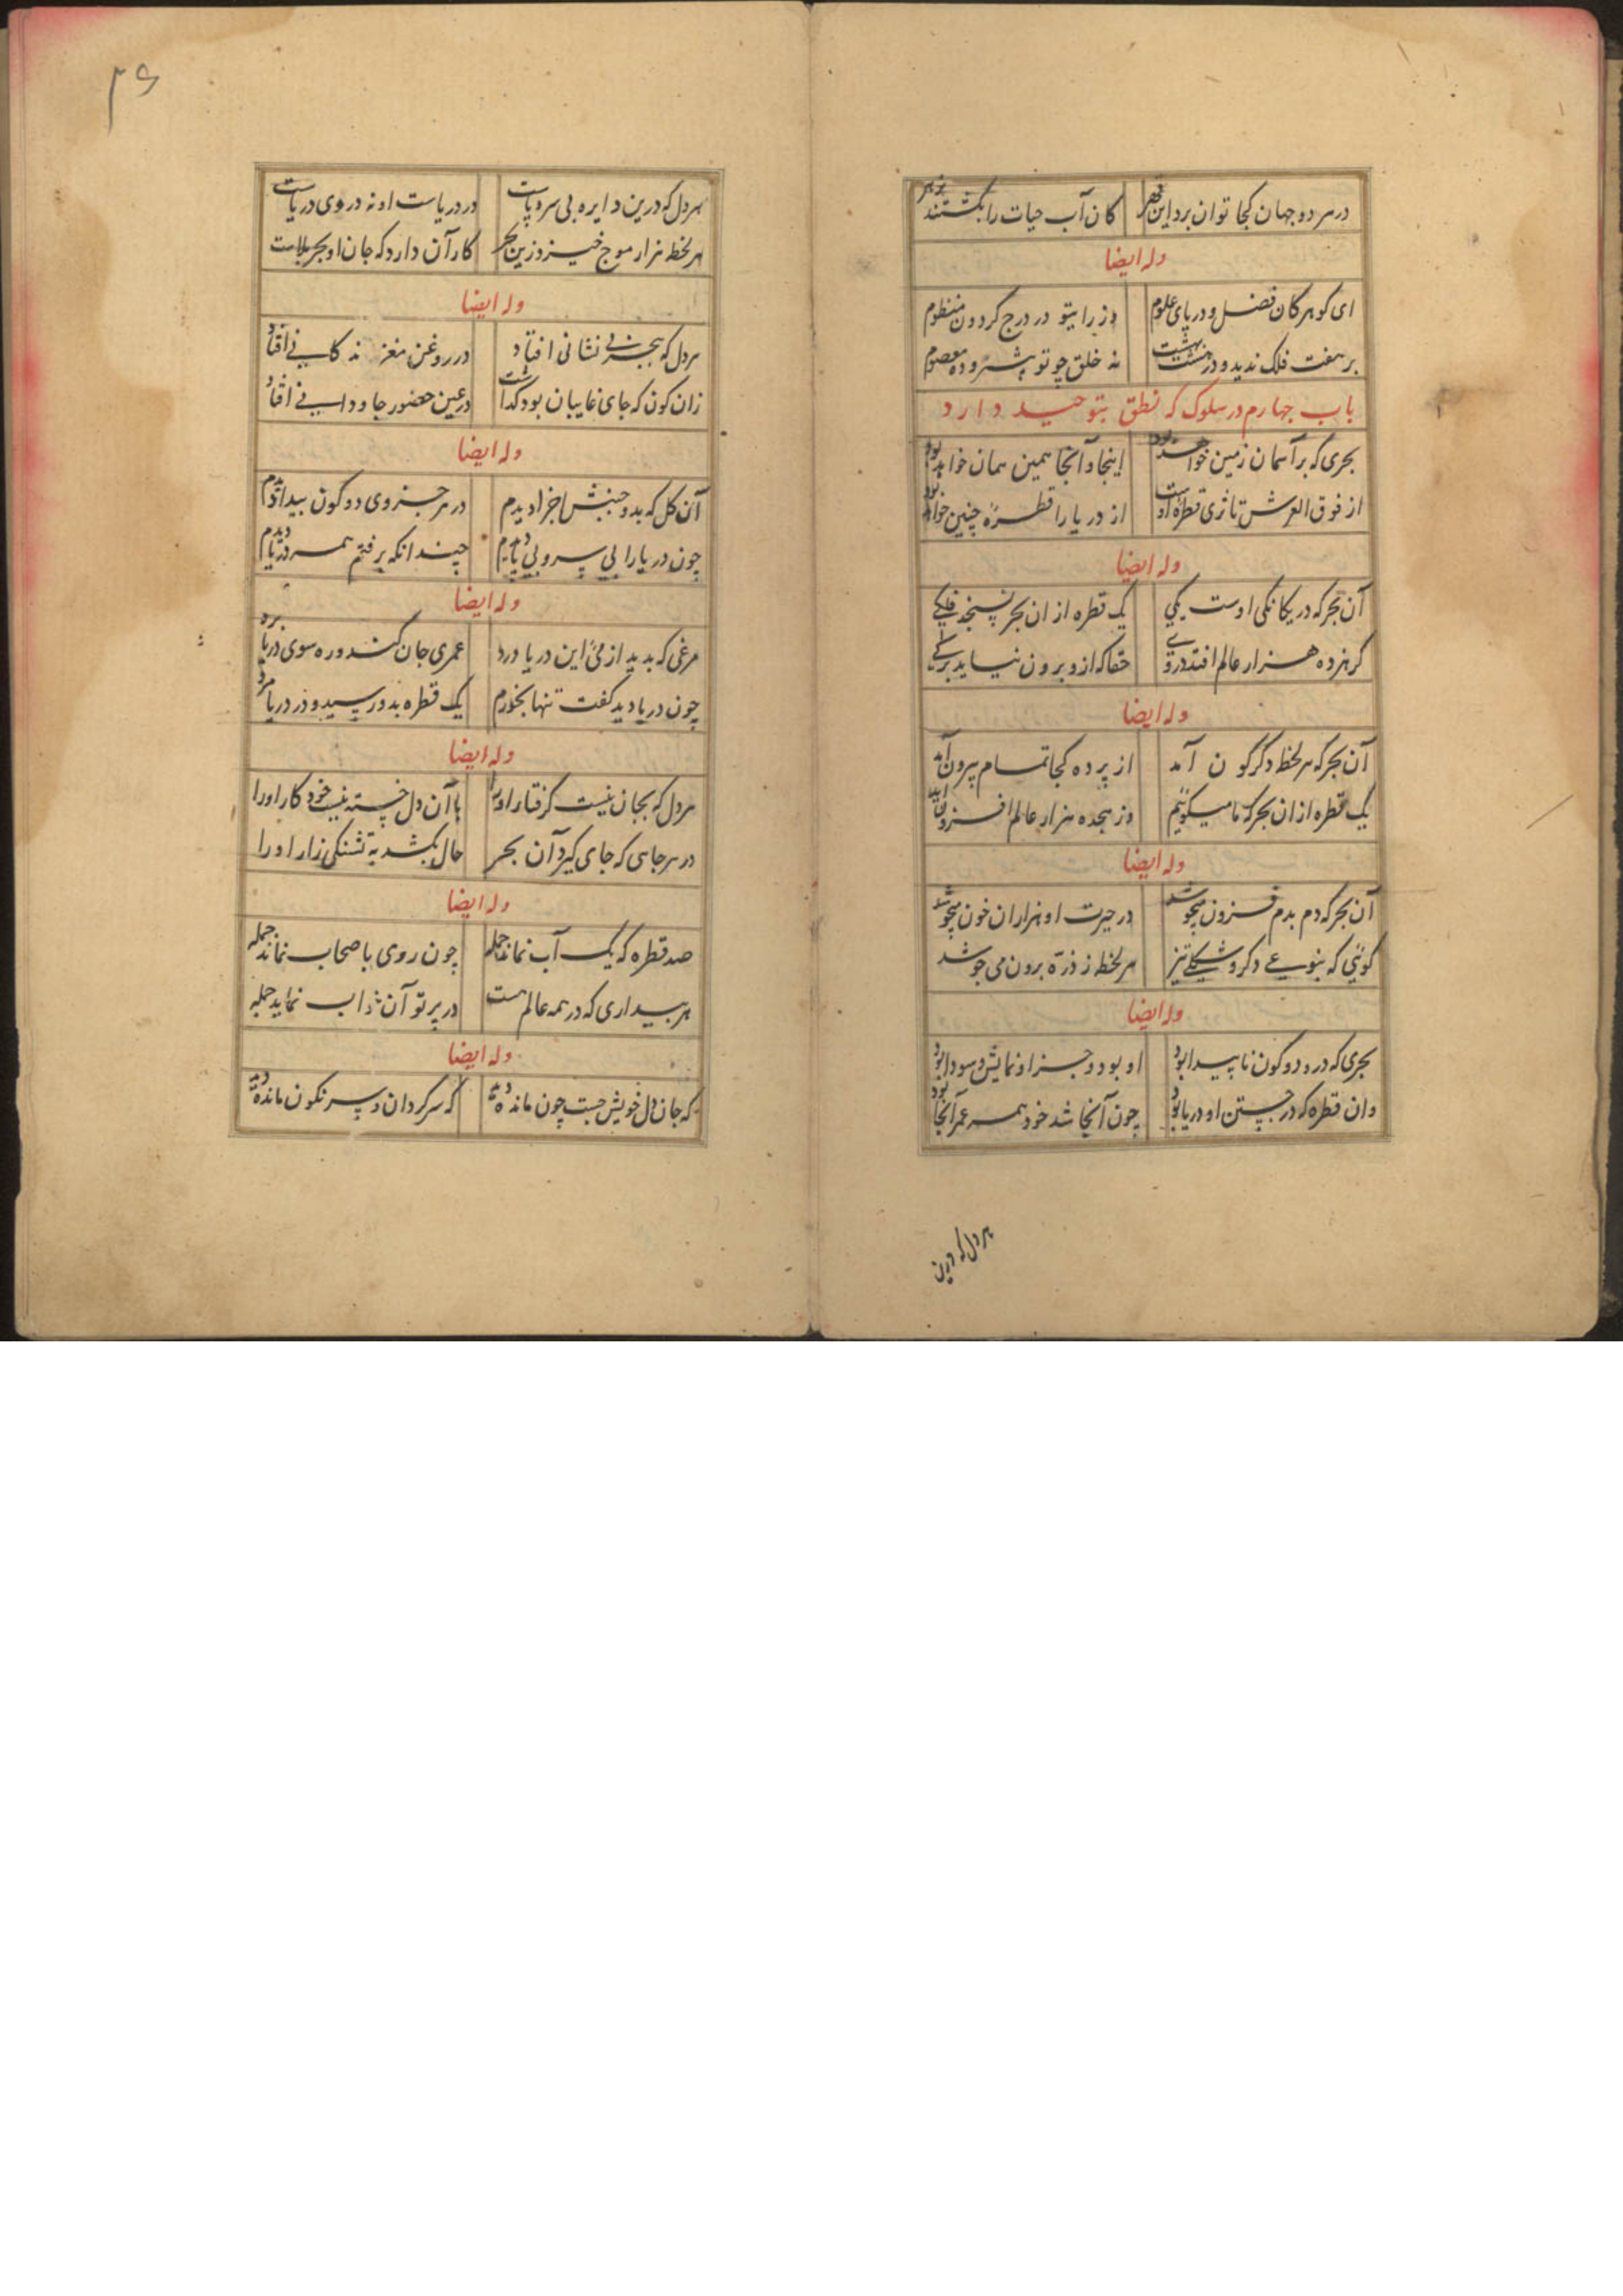 در هر دو جهان کجا توان برد این قهر کان آب حیات را بکشتند بزهر
وله ایضا
ای گوهر کان فضل و دریای علوم وز رای تو در درج گردون منظوم
بر هفت فلک ندید و در هشت بهشت نه خلق چو تو پیشرو ده معصوم
باب چهارم در سلوک که نطق بتوحید دارد
بحری که بر آسمان زمین خواهد بود اینجا و آنجا همین همان خواهد بود
از فوق العرش تا ثری قطره اوست از دریا را قطره چنین خواهد بود
وله ایضا
آن بحر که در یکانکی اوست یکی یک قطره از ان بحر نسنجد فلکی
گر هژده هزار عالم افتد در وی حقا که ازو برون نیاید برکی
وله ایضا
آن بحر که هر لحظه دگرگون آمد از پرده کجا تمام بیرون آمد
یک قطره ازان بحر که ما میگوییم وز هجده هزار عالم افزون آمد
وله ایضا
آن بحر که دم بدم فزون میجوشد در حیرت او هزاران خون میجوشد
گوئی که بنوعی دگر و شکلی نیز هر لحظه ز ذره برون می جوشد
وله ایضا
بحری که درو دو کون ناپیدا بود او بود و جز او نمایش و سودا بود
وان قطره که در جستن او دریا بود چون آنجا شد خود همه عمر آنجا بود
هر دل که درین
۴۶
هر دل که درین دایره بی سر و پاست در دریاست او نه در روی دریاست
هر لحظه هزار موج خیزد زین بحر کار آن دارد که جان او بحر بلاست
وله ایضا
هر دل که ببحر بی نشانی افتاد در روغن مغز زندگانی افتاد
زان کون که جای غایبان بود گذشت در عین حضور جاودانی افتاد
وله ایضا
آن کل که بدو جنبش اجزا دیدم در هر جزوی دو کون پیدا دیدم
چون دریا را بی سر و بی پا دیدم چندانکه برفتم همه دریا دیدم
وله ایضا
مرغی که بدید از می این دریا درد عمری جان کند و ره سوی دریا برد
چون دریا دید گفت تنها بخورم یک قطره بدو رسید و در دریا مرد
وله ایضا
هر دل که بجان نیست گرفتار او را با آن دل خسته نیست خود کار او را
در هر جاهی که جای گیرد آن بحر حال بکشد به تشنگی زار او را
وله ایضا
صد قطره که یک آب نماند جمله چون روی باصحاب نماند جمله
هر بیداری که در همه عالم هست در پرتو آن خواب نماید جمله
وله ایضا
که جان دل خویش جست چون مانده شد که سرگردان و سرنگون مانده شد